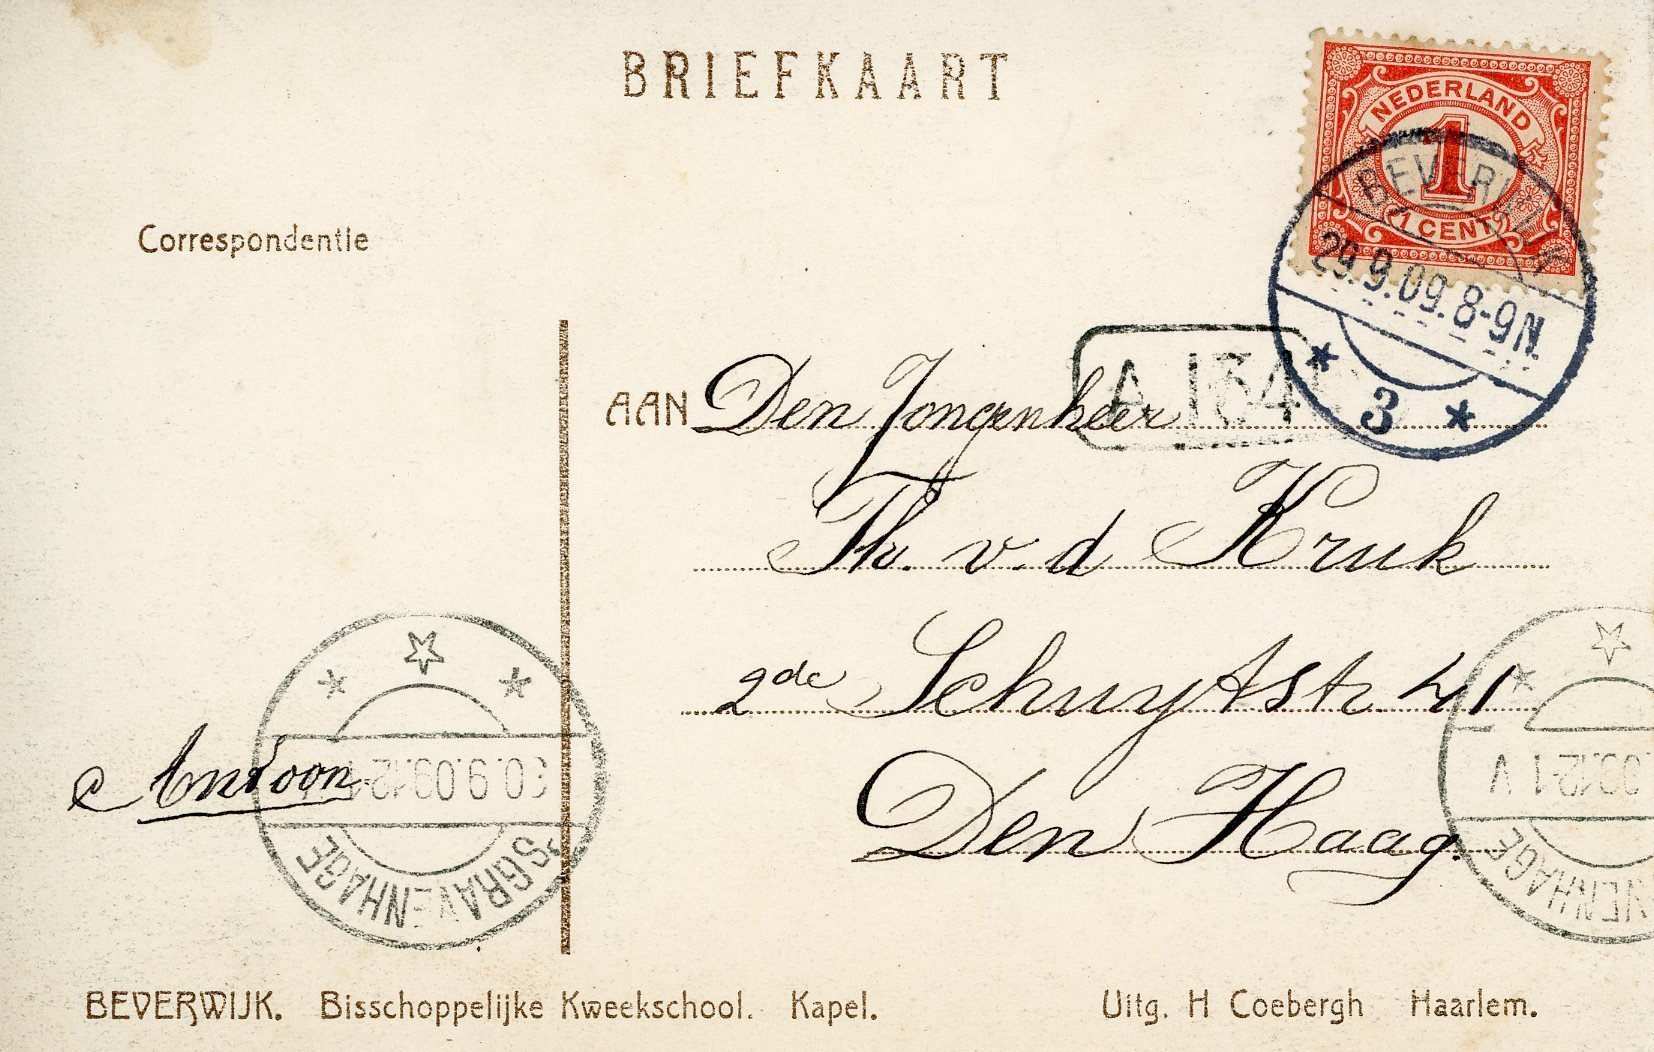 BRIEFKAART
NEDERLAND
1
1 CENT
BEVERWIJK
29.9.09.8-9N
3
Correspondentie
A 134
AAN Den Jongenheer
Th. v. d Kruk
2de Schuytstr. 41
Den Haag.
Antoon
30.9.09.12-1
'SGRAVENHAGE
.09.12-1 V
VENHAGE
BEVERWIJK. Bisschoppelijke Kweekschool. Kapel.
Uitg. H Coebergh Haarlem.